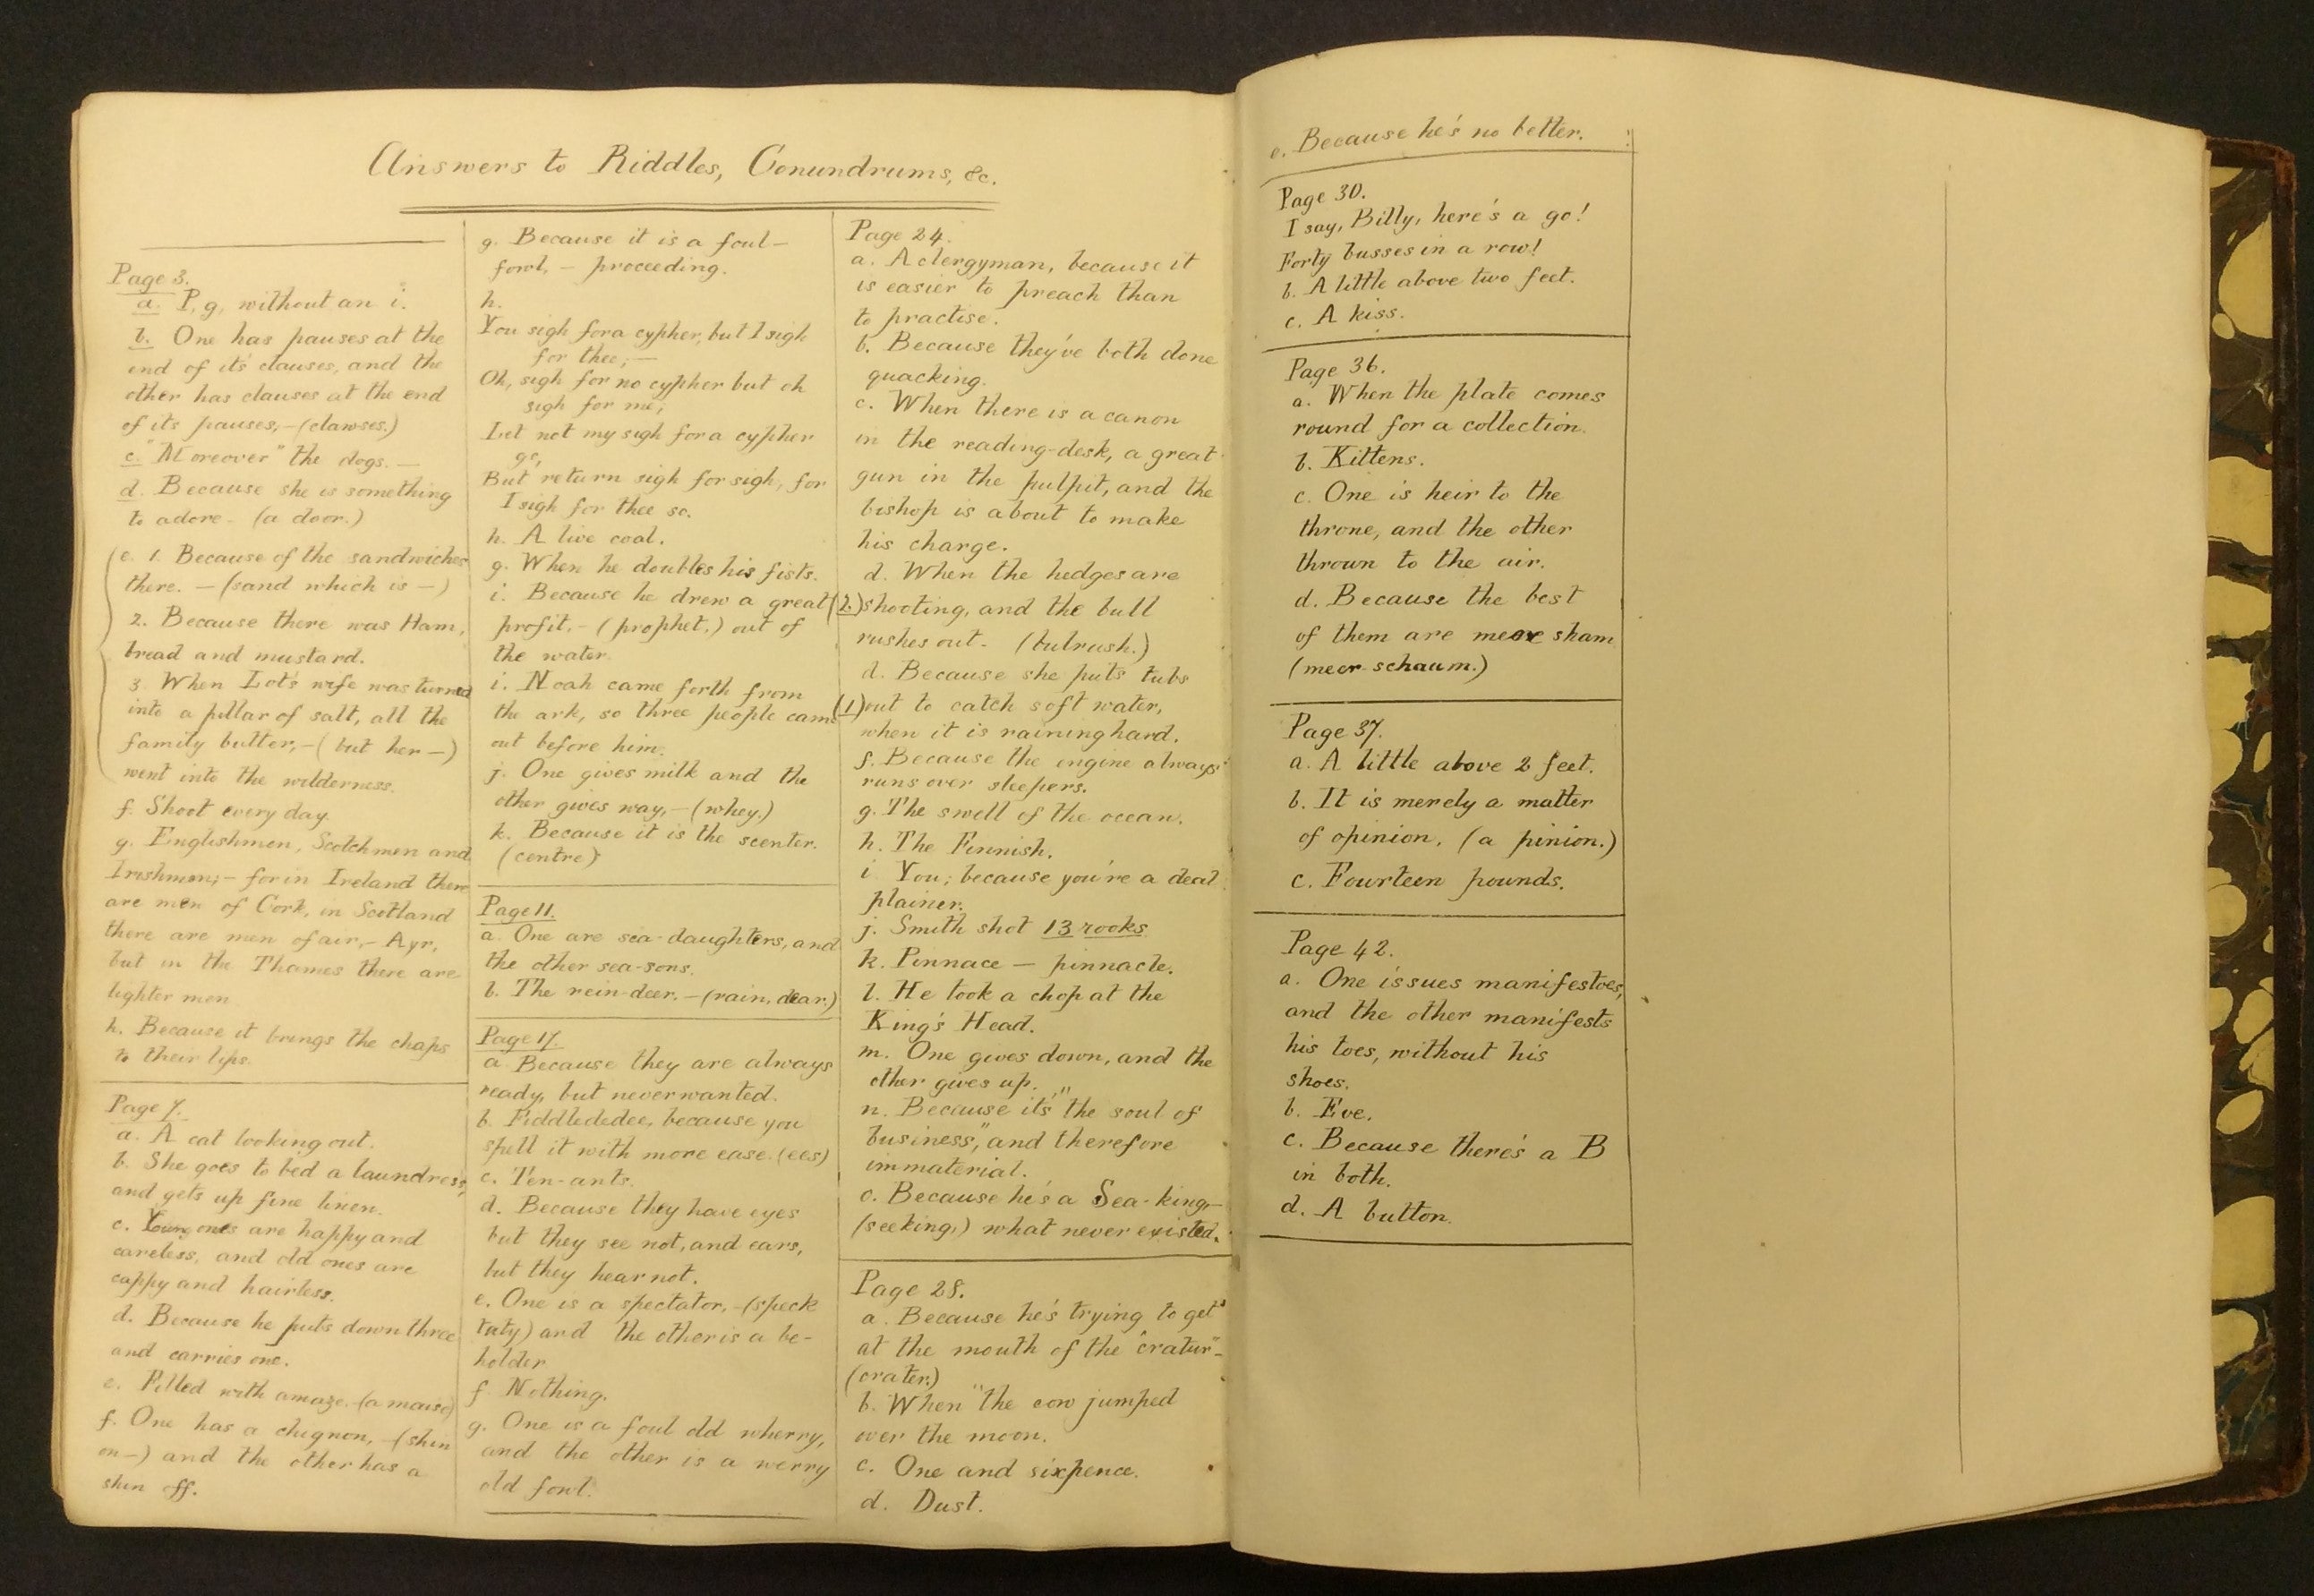 Answers to Riddles, Conundrums, &c.
Page 3.
a. P, g, without an i.
b. One has pauses at the
end of it's clauses, and the
other has clauses at the end
of its pauses,-(clawses.)
c. "Moreover" the dogs.—
d. Because she is something
to adore - (a door.)
e. 1. Because of the sandwiches
there. — (sand which is —)
2. Because there was Ham,
bread and mustard.
3. When Lot's wife was turned
into a pillar of salt, all the
family butter, —( but her —)
went into the wilderness.
f. Shoot every day.
g. Englishmen, Scotchmen and
Irishmen; — for in Ireland there
are men of Cork, in Scotland
there are men of air, — Ayr,
but in the Thames there are
lighter men
h. Because it brings the chaps
to their lips.
Page 7.
a. A cat looking out.
b. She goes to bed a laundress,
and gets up fine linen.
c. Young ones are happy and
careless, and old ones are
cappy and hairless.
d. Because he puts down three
and carries one.
e. Filled with amaze. (a maise)
f. One has a chignon, —(shin
on—) and the other has a
shin off.
g. Because it is a foul—
fowl, — proceeding.
h.
You sigh for a cypher, but I sigh
for thee;—
Oh, sigh for no cypher but oh
sigh for me;
Let not my sigh for a cypher
go,
But return sigh for sigh, for
I sigh for thee so.
h. A live coal.
g. When he doubles his fists.
i. Because he drew a great
profit. — (prophet.) out of
the water.
i. Noah came forth from
the ark, so three people came
out before him.
j. One gives milk and the
other gives way, — (whey.)
k. Because it is the scenter.
(centre)
Page 11.
a. One are sea-daughters, and
the other sea-sons.
b. The rein-deer. — (rain, dear.)
Page 17.
a. Because they are always
ready, but never wanted.
b. Fiddlededee, because you
spell it with more ease. (ees)
c. Ten-ants.
d. Because they have eyes
but they see not, and ears,
but they hear not.
e. One is a spectator, —(speck
taty) and the other is a be-
holder
f. Nothing.
g. One is a foul old wherry,
and the other is a werry
old fowl.
Page 24.
a. A clergyman, because it
is easier to preach than
to practise.
b. Because they've both done
quacking.
c. When there is a canon
in the reading-desk, a great
gun in the pulpit, and the
bishop is about to make
his charge.
d. When the hedges are
(2.) shooting, and the bull
rushes out. (bulrush.)
d. Because she puts tubs
(1) out to catch soft water,
when it is raining hard.
f. Because the engine always
runs over sleepers.
g. The swell of the ocean.
h. The Finnish.
i You; because you're a deal
plainer.
j. Smith shot 13 rooks
k. Pinnace — pinnacle.
l. He took a chop at the
King's Head.
m. One gives down, and the
other gives up.
n. Because it's "the soul of
business," and therefore
immaterial.
o. Because he's a Sea-king,—
(seeking,) what never existed.
Page 28.
a. Because he's trying to get
at the mouth of the "cratur"—
(crater.)
b. When "the cow jumped
over the moon.
c. One and sixpence.
d. Dust.
e. Because he's no better.
Page 30.
I say, Billy, here's a go!
Forty busses in a row!
b. A little above two feet.
c. A kiss.
Page 36.
a. When the plate comes
round for a collection.
b. Kittens.
c. One is heir to the
throne, and the other
thrown to the air.
d. Because the best
of them are mere sham
(meer-schaum.)
Page 37.
a. A little above 2 feet.
b. It is merely a matter
of opinion. (a pinion.)
c. Fourteen pounds.
Page 42.
a. One issues manifestoes,
and the other manifests
his toes, without his
shoes.
b. Eve.
c. Because there's a B
in both.
d. A button.